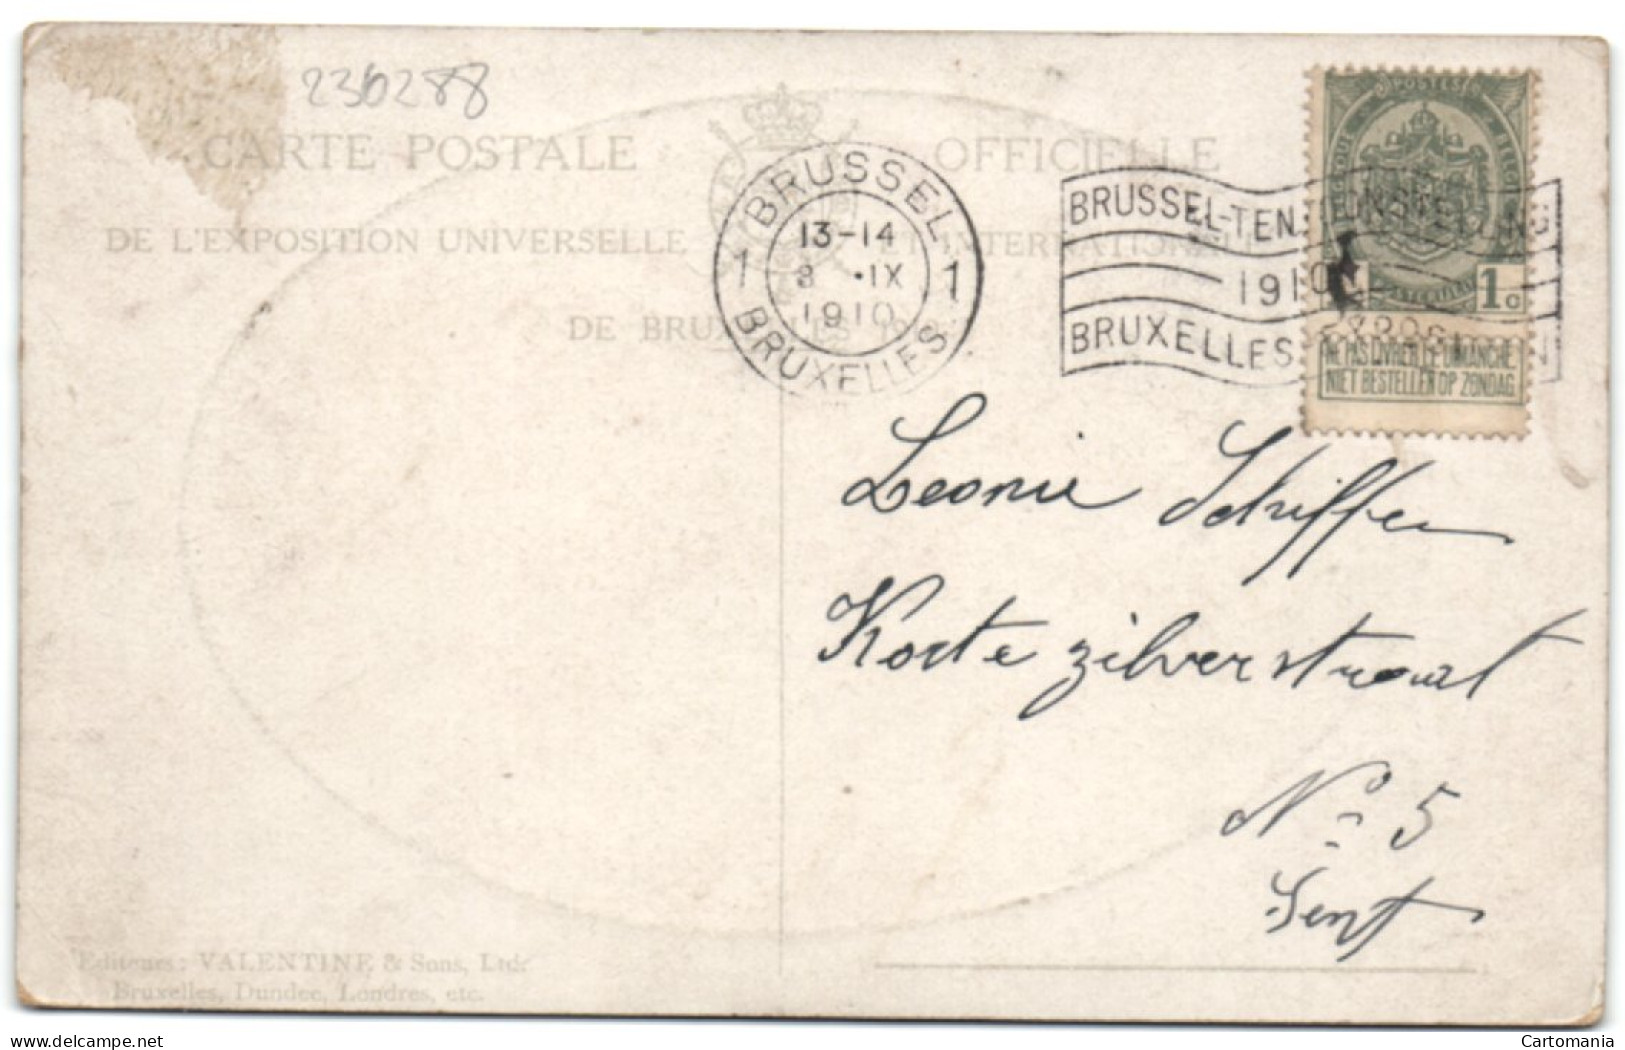 236288
CARTE POSTALE OFFICIELLE
DE L'EXPOSITION UNIVERSELLE ET INTERNATIONALE
DE BRUXELLES 1910
1 BRUSSEL 1
13-14
3 .IX
1910
BRUXELLES
BRUSSEL-TEN.TOONSTELLING
1910
BRUXELLES EXPOSITION
POSTES
BELGIQUE
1c
NE PAS LIVRER LE DIMANCHE
NIET BESTELLEN OP ZONDAG
Leonie Schiffer
Korte Zilverstraat
No 5
Gent
Editeurs: VALENTINE & Sons, Ltd.
Bruxelles, Dundee, Londres, etc.
delcampe.net
Cartomania